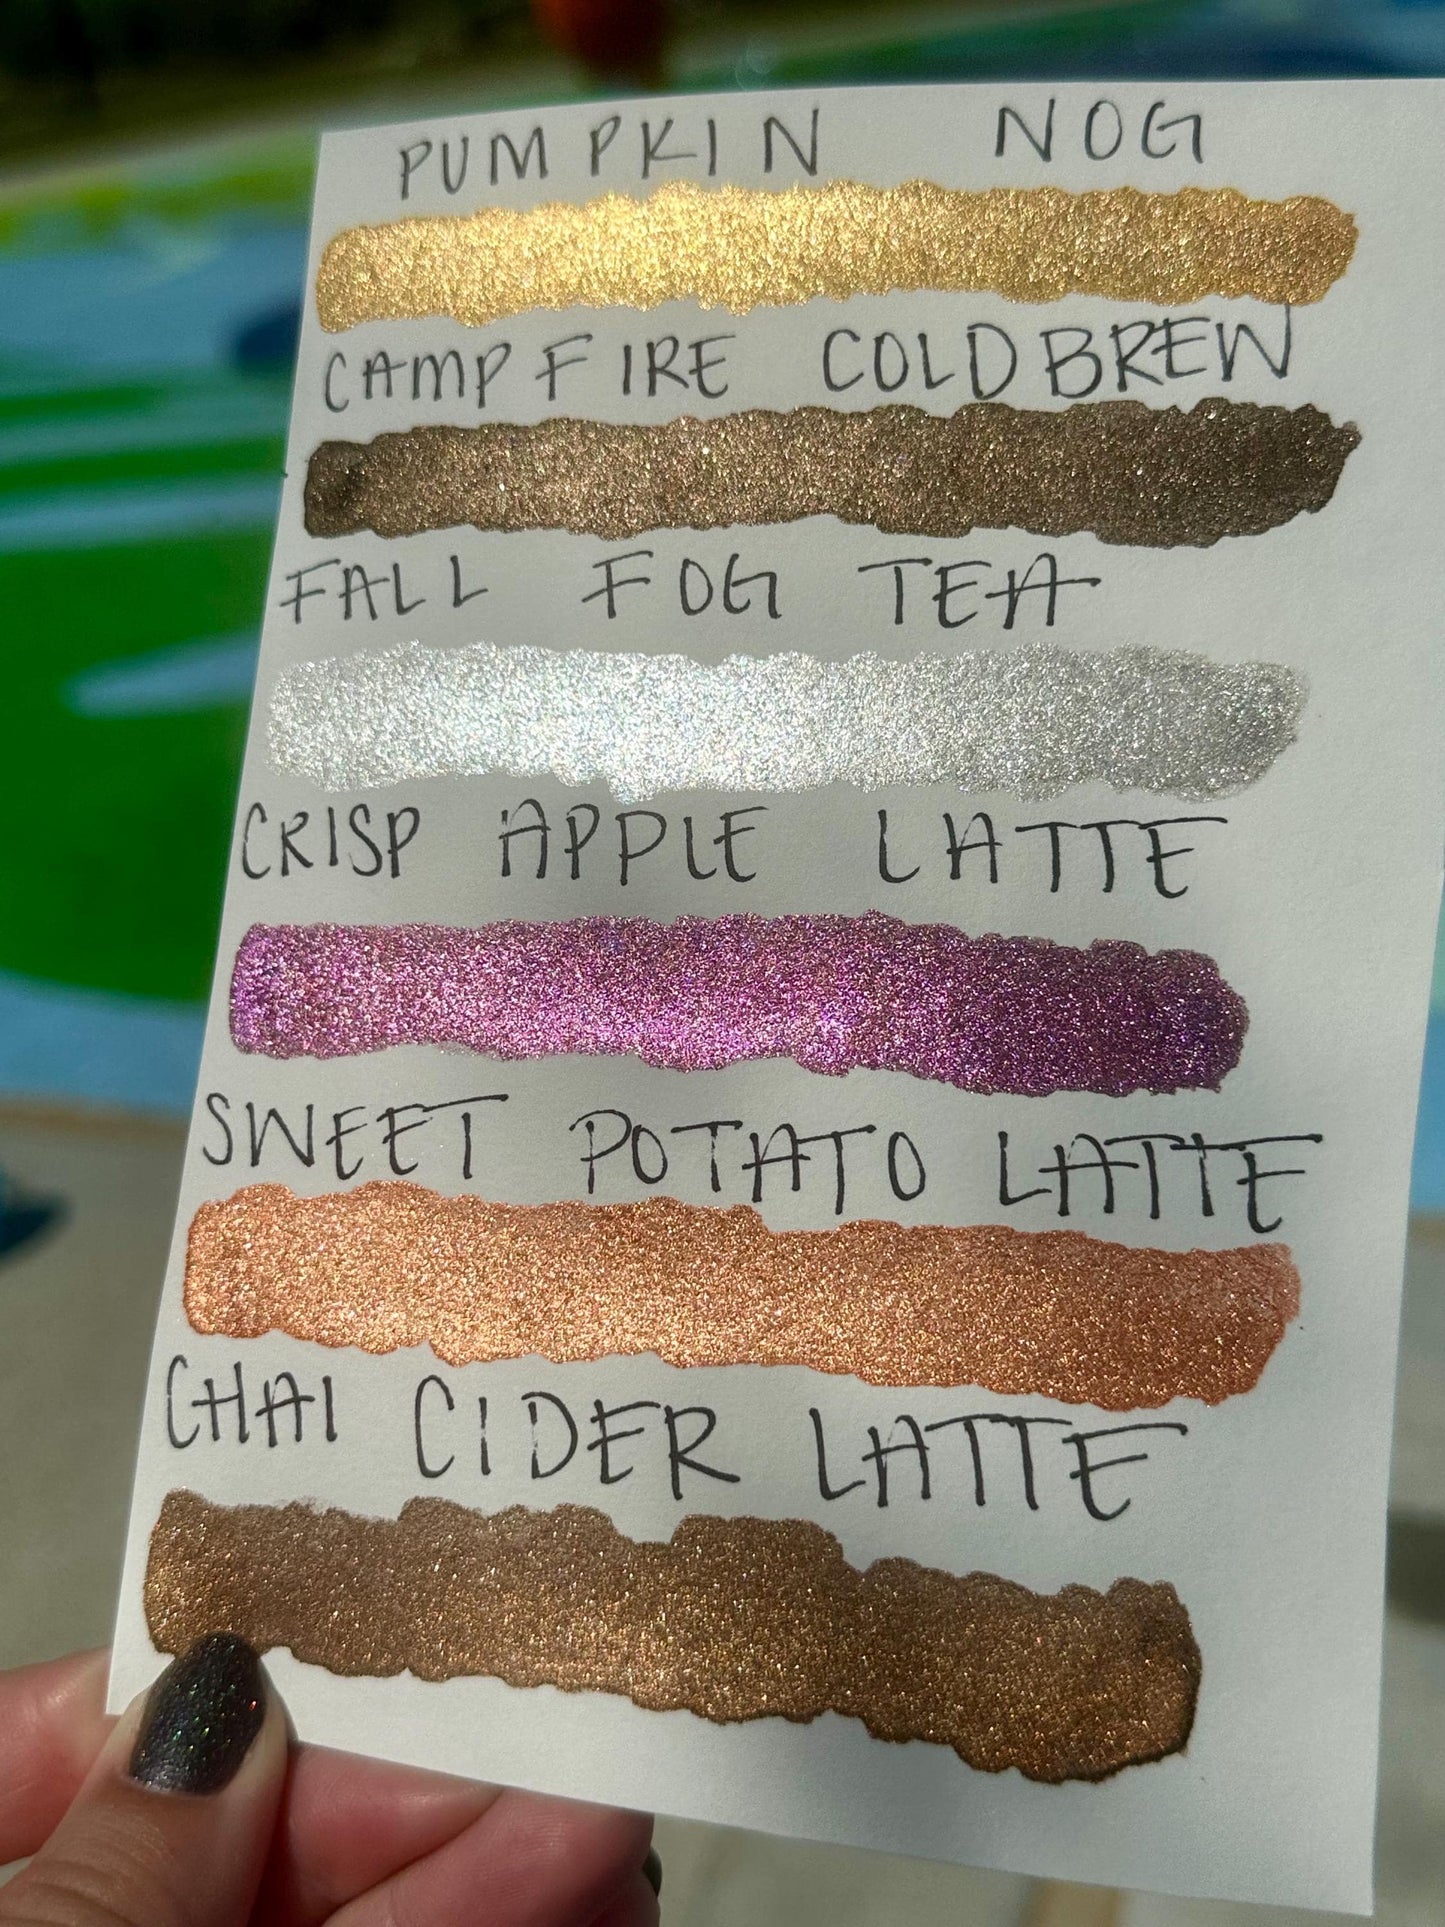 PUMPKIN NOG
CAMPFIRE COLD BREW
FALL FOG TEA
CRISP APPLE LATTE
SWEET POTATO LATTE
CHAI CIDER LATTE